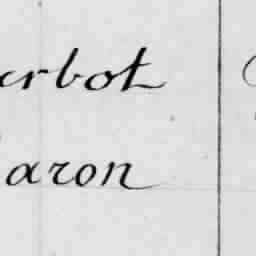 erbot
aron